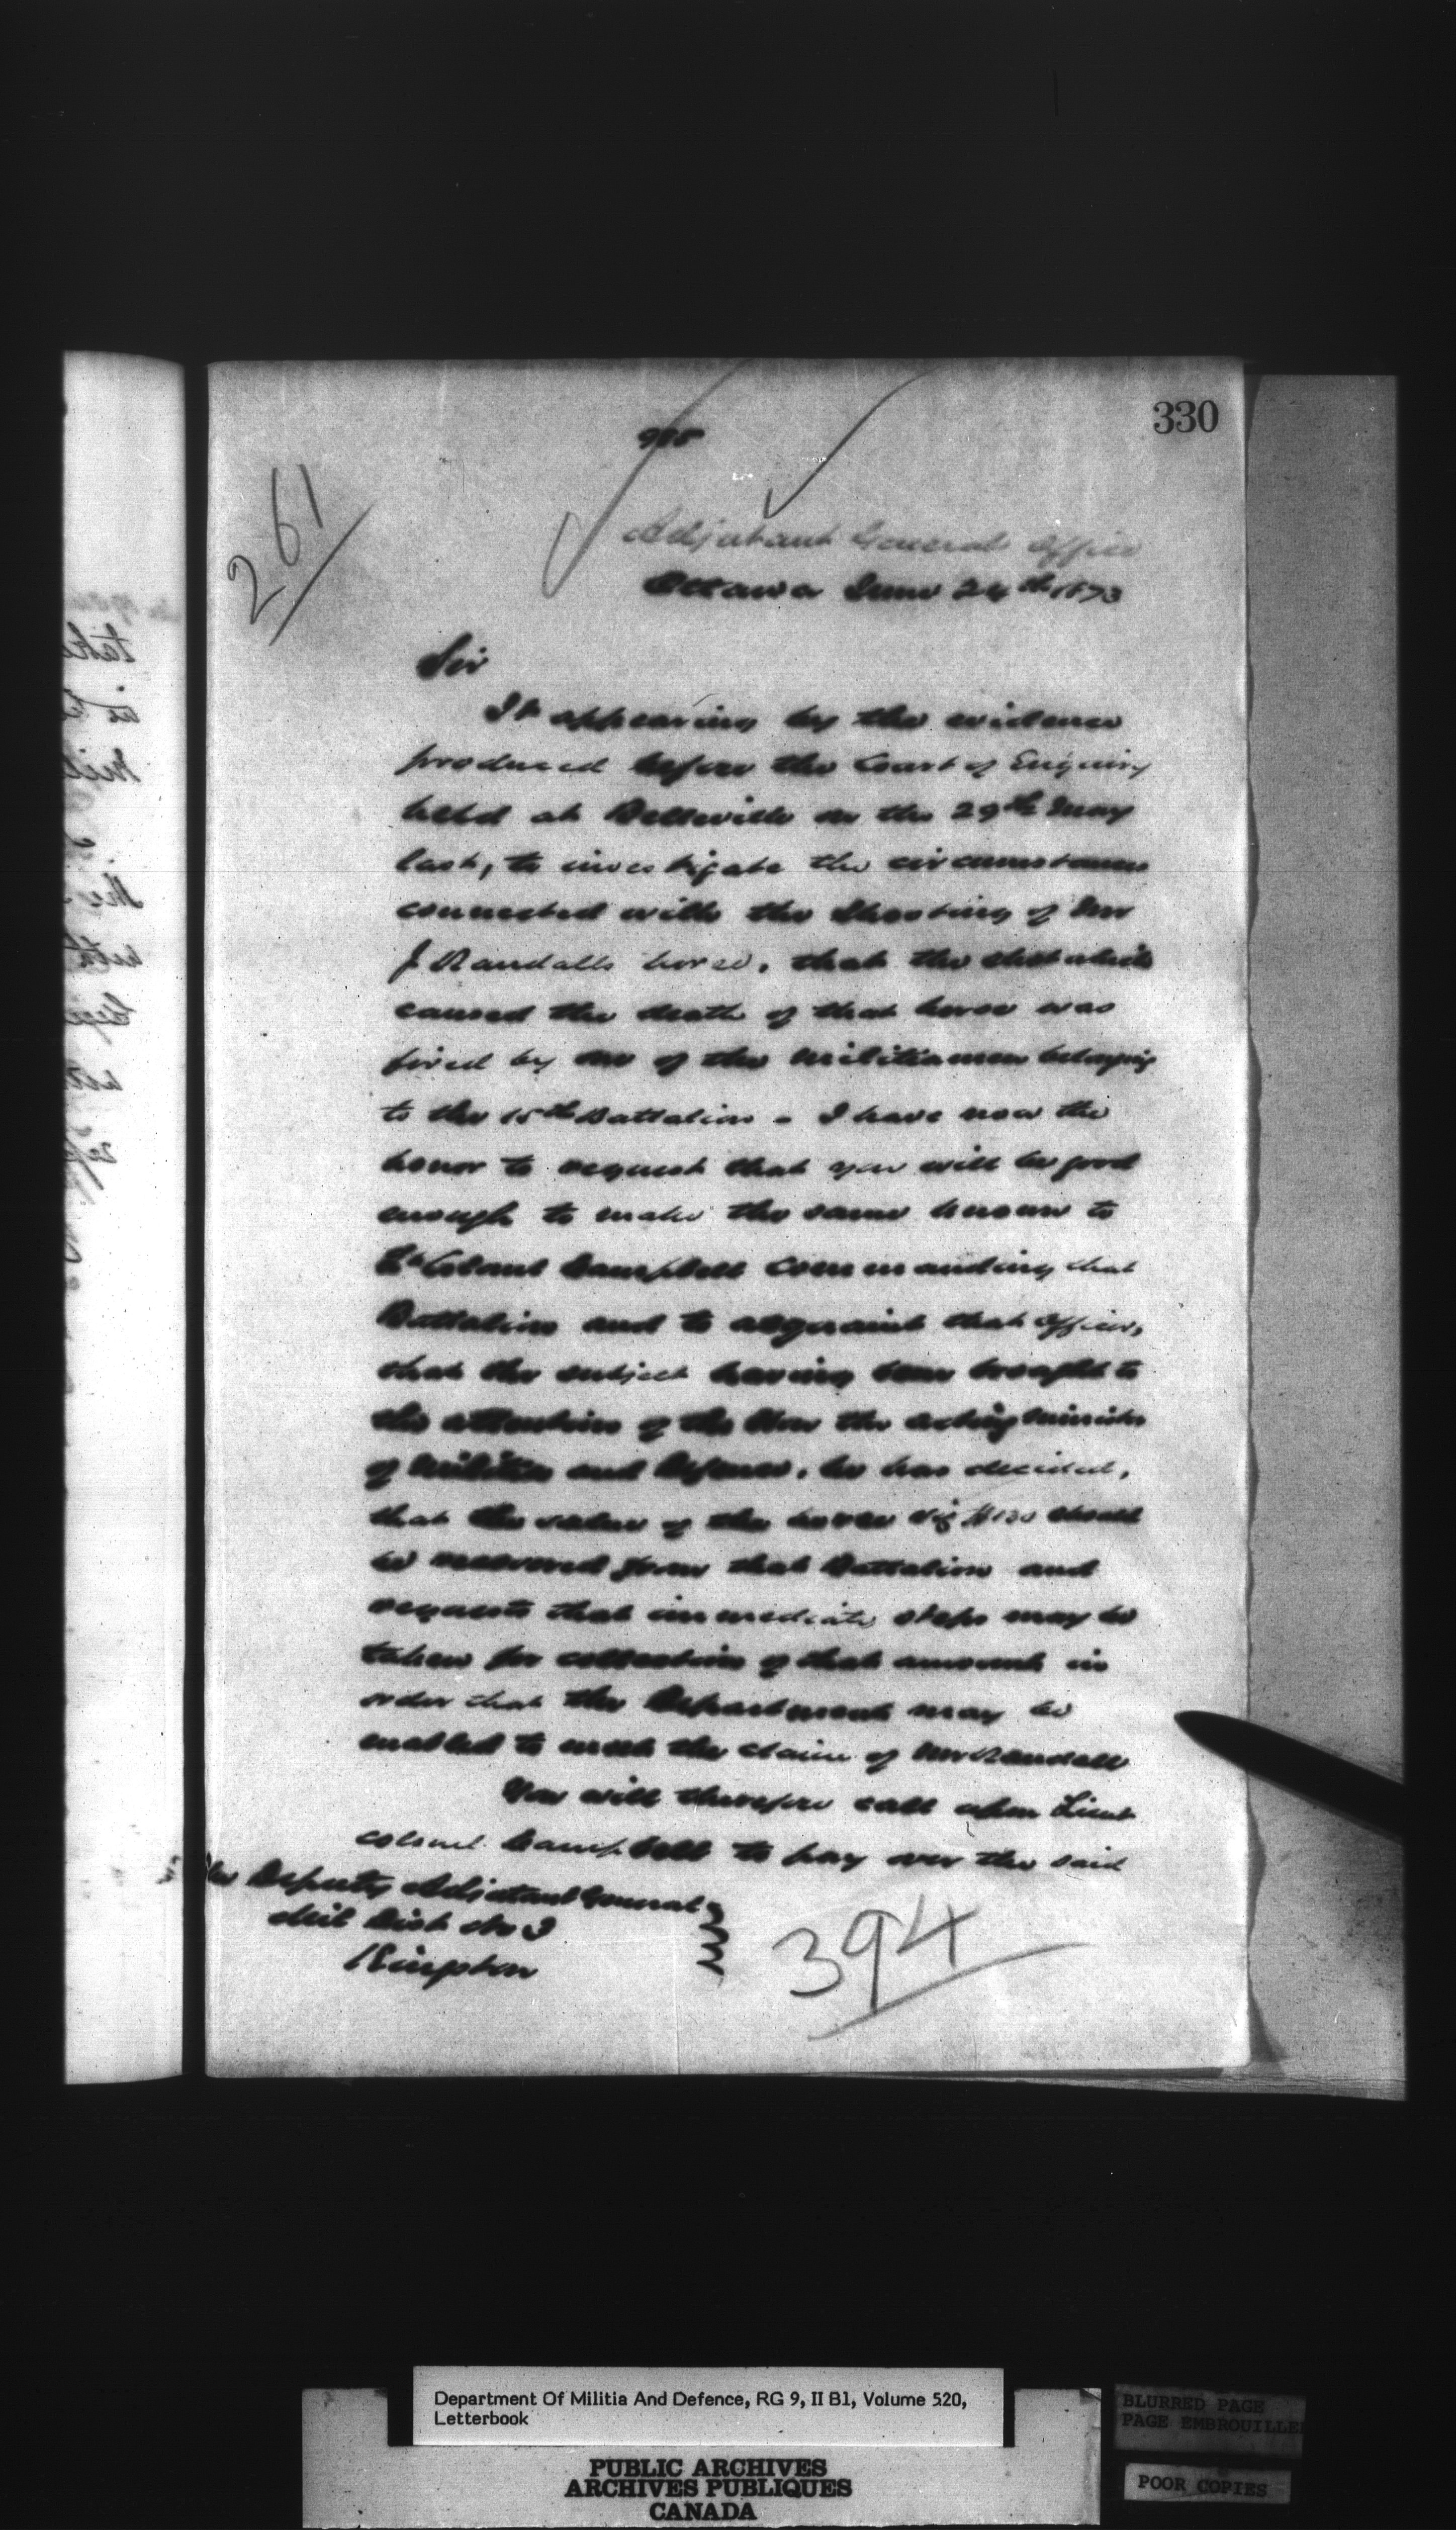 330
985
261
Adjutant Generals Office
Ottawa June 24th 1873
Sir
It appearing by the evidence
produced before the Court of Enquiry
held at Belleville on the 29th May
last, to investigate the circumstances
connected with the Shooting of Mr
J Randalls horse, that the shot which
caused the death of that horse was
fired by one of the Militiamen belonging
to the 15th Battalion - I have now the
honor to request that you will be good
enough to make the same known to
Lt Colonel Campbell Commanding that
Battalion and to acquaint that Officer,
that the subject having been brought to
the attention of the Hon the acting Minister
of Militia and Defence, he has decided,
that the value of the horse viz should
be recovered from that Battalion and
requests that immediate steps may be
taken for collection of that amount in
order that the Department may be
enabled to meet the claim of Mr Randall
You will therefore call upon Lieut
Colonel Campbell to pay over the said
The Deputy Adjutant General
Mil Dist No 3
Kingston
394
Department Of Militia And Defence, RG 9, II B1, Volume 520,
Letterbook
PUBLIC ARCHIVES
ARCHIVES PUBLIQUES
CANADA
BLURRED PAGE
PAGE EMBROUILLEE
POOR COPIES